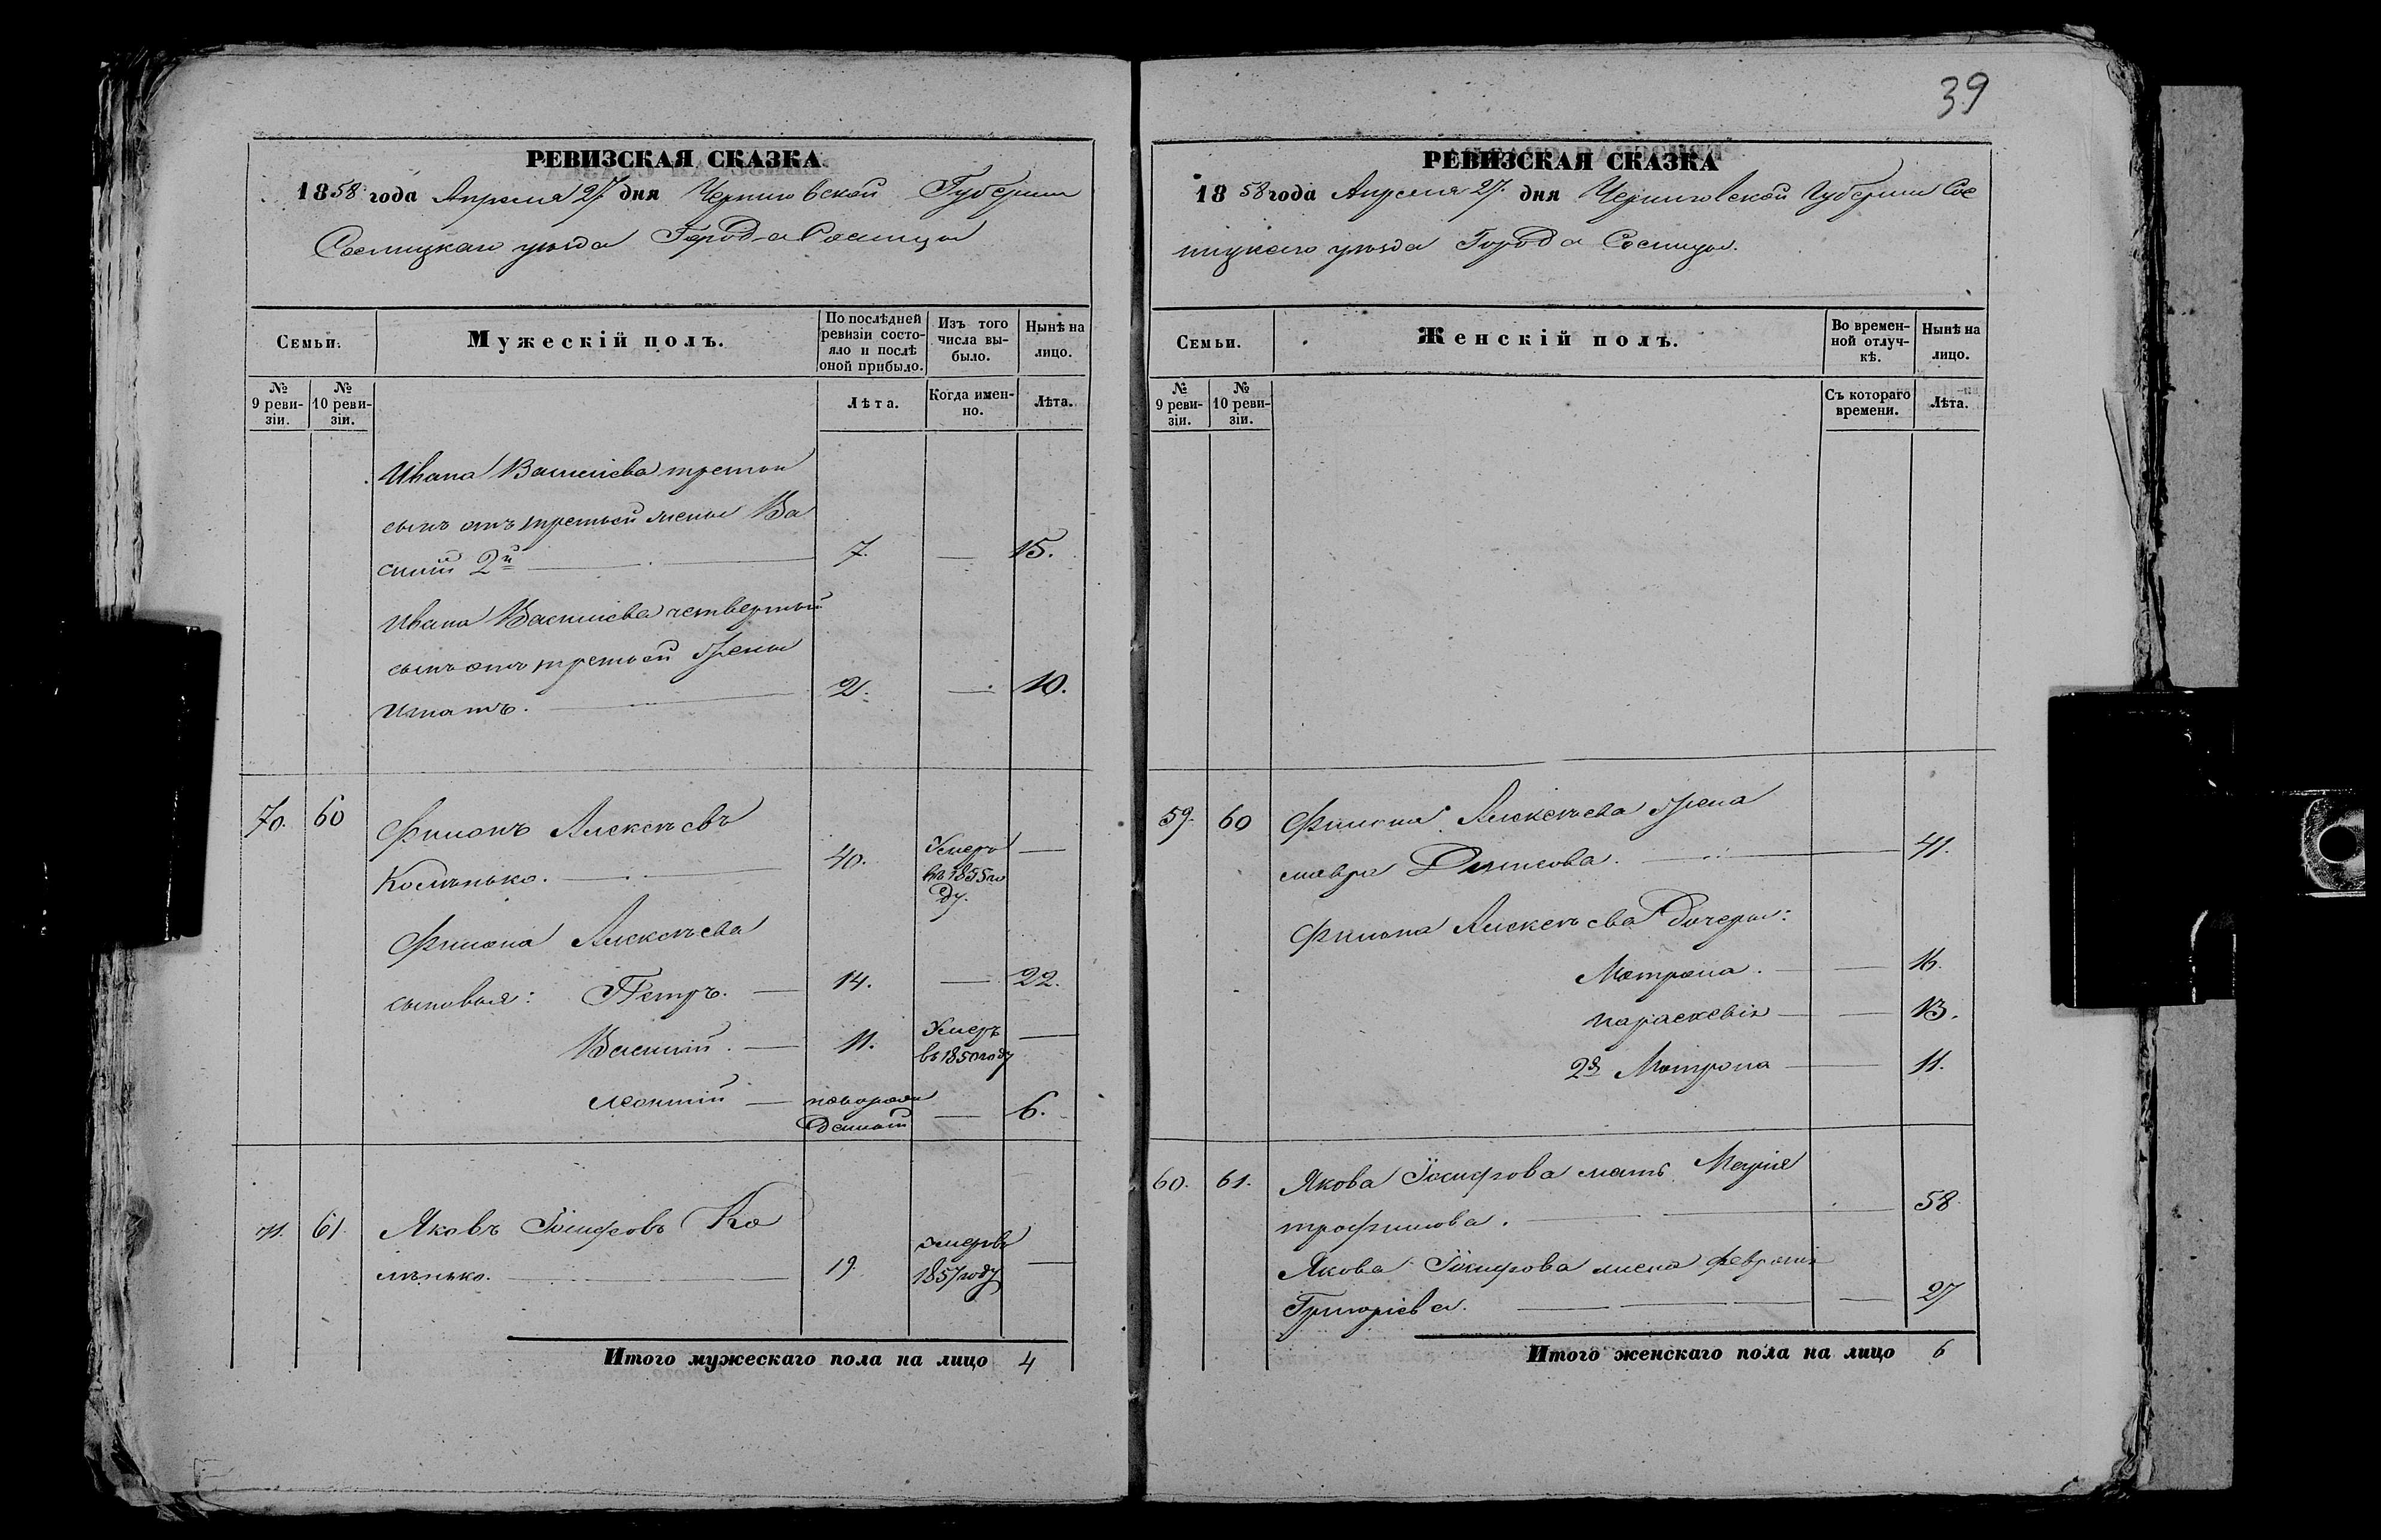 РЕВИЗСКАЯ СКАЗКА
1858 года Апреля 27 дня Черниговской Губернии
Сосницкаго уѣзда Города Сосницы
Семьи.
Мужескій полъ.
По послѣдней ревизіи состояло и послѣ оной прибыло.
Изъ того числа выбыло.
Нынѣ на лицо.
№ 9 ревизіи.
№ 10 ревизіи.
Лѣта.
Когда именно.
Лѣта.
Ивана Васильева третий
сынъ отъ третьей жены Ва
силий 2й 7. — 15.
Ивана Васильева четвертый
сынъ отъ третьей жены
Игнатъ. 2. — 10.
70. 60 Филонъ Алексѣевъ
Космѣнько. 40. Умеръ въ 1855 го
ду. —
Филона Алексѣева
сыновья: Петръ. — 14. — 22.
Василий. — 11. Умеръ
въ 1850 году —
Леонтий — новорож
денный — 6.
71. 61. Яковъ Никифровъ Ко
смѣнько. 19. умеръ въ
1857 году —
Итого мужескаго пола на лицо 4
39
РЕВИЗСКАЯ СКАЗКА
1858 года Апреля 27. дня Черниговской Губернии Сос
ницкаго уѣзда Города Сосницы.
Семьи.
Женскій полъ.
Во временной отлучкѣ.
Нынѣ на лицо.
№ 9 ревизіи.
№ 10 ревизіи.
Съ котораго времени.
Лѣта.
59. 60 Филона Алексѣева жена
Мавра 41.
Филона Алексѣева дочери:
Мотрона. — — 16.
Параскевія — — 13.
2я Мотрона — 11.
60. 61. Якова мать Марія
Трофимова. 58
Якова жена Февронія
Григоріева. — 27
Итого женскаго пола на лицо 6